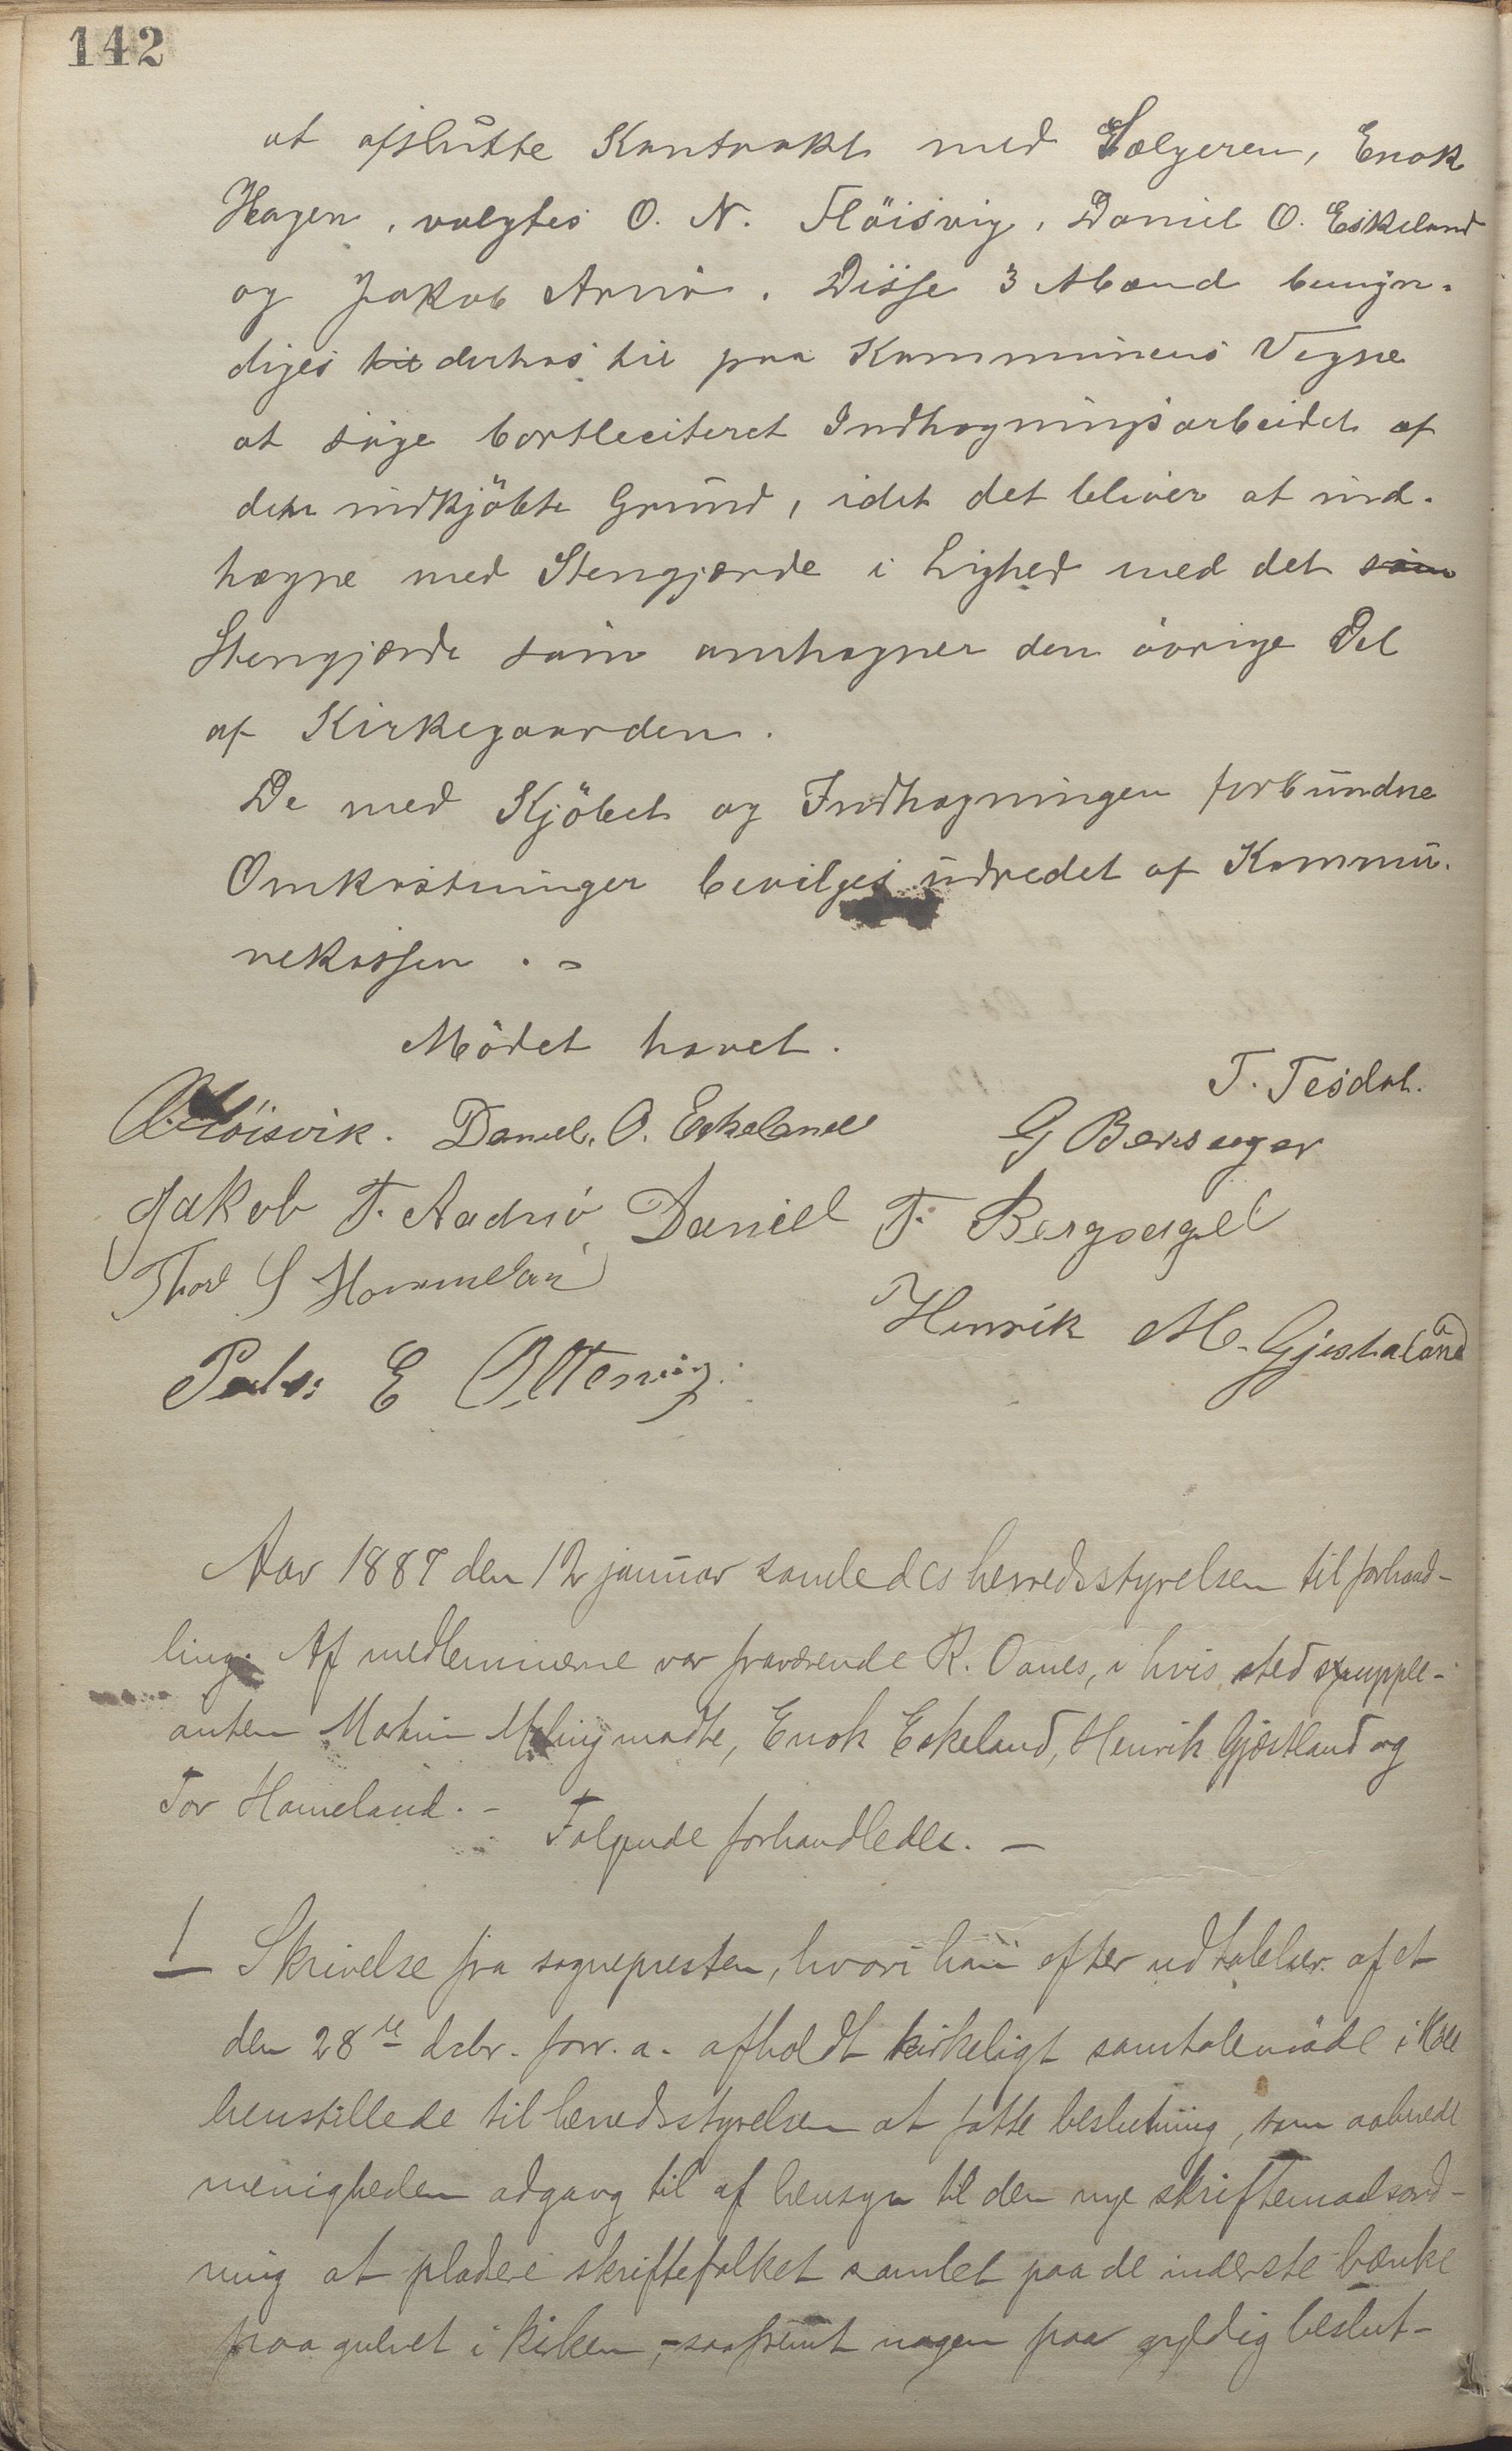 142
at afslutte Kontrakt med Sælgeren, Enok
Hagen, valgtes O. N. Flöisvig, Daniel O. Eskeland
og Jakob Arnö. Disse 3 Mænd bemyn-
diges til derhos til paa Kommunens Vegne
at söge bortleciteret Indhegningsarbeidet af
den indkjöbte Grund, idet det bliver at ind-
hegne med Stengjærde i Lighed med det som
Stengjærde som omhegner den övrige Del
af Kirkegaarden.
De med Kjöbet og Indhegningen forbundne
Omkostninger beviljes udredet af Kommu-
nekassen. -
Mödet hævet.
T. Tesdal.
Flöisvik. Daniel. O. Eskeland
G Bersagel
Jakob T. Aadnö Daniel T. Bergsagel
Thor S Hommeland
Henrik M. Gjestaland
Peder E Oltesvig.
Aar 1887 den 12 januar samledes herredsstyrelsen til forhand-
ling. Af medlemmerne var fraværende R. Oanes, i hvis sted supple-
anten Martin Meling mødte, Enok Eskeland, Henrik Gjestland og
Tor Hameland. -
Følgende forhandledes. -
1 Skrivelse fra sognepresten, hvori han efter udtalelser af et
den 28de dcbr. forr. a. afholdt kirkeligt samtalemöde i Hole
henstillede til herredsstyrelsen at fatte beslutning, som aabnede
menigheden adgang til af hensyn til den nye skriftemaalsord-
ning at pladere skriftefolket samlet paa de inderste bænke
paa gulvet i kirken, - saafremt nogen paa gyldig beslut-